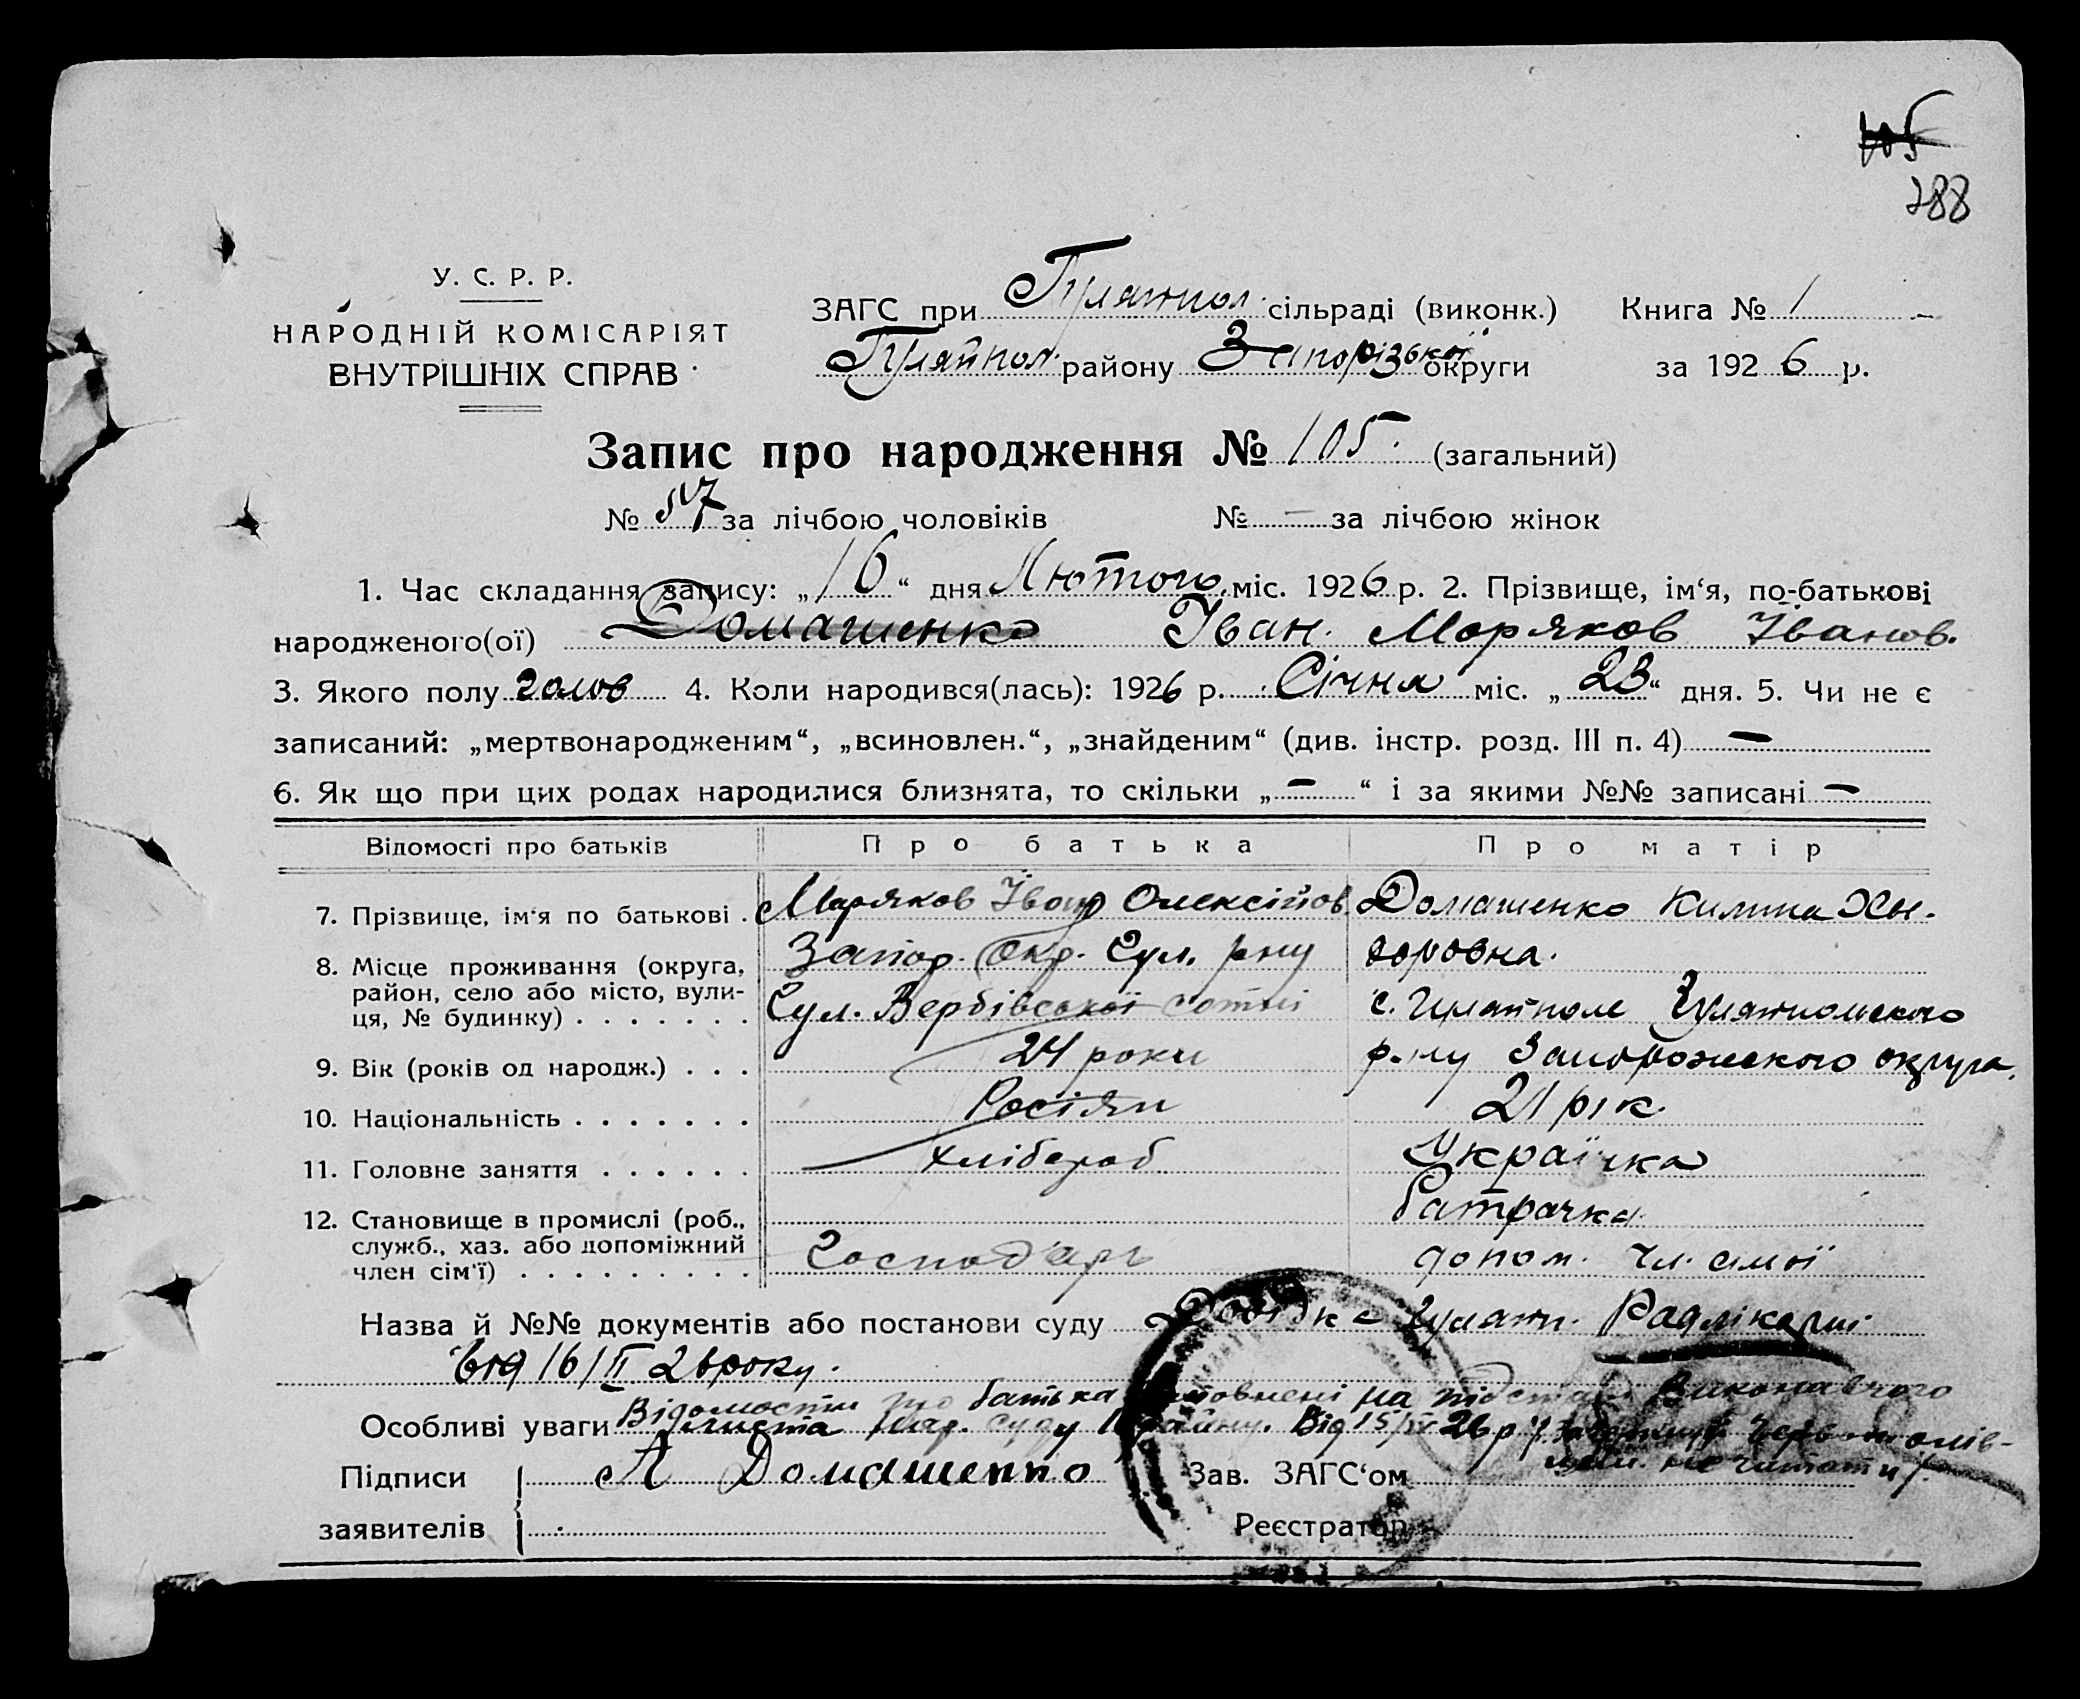 105
288
У. С. Р. Р.
НАРОДНІЙ КОМІСАРІЯТ
ВНУТРІШНІХ СПРАВ
ЗАГС при Гуляйпол. сільраді (виконк.) Книга № 1
Гуляйпол. району Запорізької округи за 1926 р.
Запис про народження № 105. (загальний)
№ 57 за лічбою чоловіків № — за лічбою жінок
1. Час складання запису: „16“ дня Лютого міс. 1926 р. 2. Прізвище, ім‘я, по-батькові
народженого(ої) Домашенко Іван. Моряков Іванов.
3. Якого полу чолов 4. Коли народився(лась): 1926 р. Січня міс. „23“ дня. 5. Чи не є
записаний: „мертвонародженим“, „всиновлен.“, „знайденим“ (див. інстр. розд. III п. 4) —
6. Як що при цих родах народилися близнята, то скільки „—“ і за якими №№ записані —
Відомості про батьків Про батька Про матір
7. Прізвище, ім‘я по батькові . Моряков Іван Олексійов. Домашенко Килина
8. Місце проживання (округа, Запор. Окр. Гул. р-ну
район, село або місто, вули-
ця, № будинку) . . . . . . . Гул. Вербівської сотні с. Гуляйполе Гуляйпольского
9. Вік (років од народж.) . . . 24 роки р-ну Запорожского округа.
10. Національність . . . . . . . Росіян 21 рік.
11. Головне заняття . . . . . . хлібороб Українка
12. Становище в промислі (роб., батрачка
служб., хаз. або допоміжний
член сім‘ї) . . . . . . . . . Господарь допом. чл. сімї
Назва й №№ документів або постанови суду Довідка Гуляйп. Радлікарні
від 16/II 26 року.
Особливі уваги Відомости про батька заповнені на підставі Виконавчого
листа Нар. суду району. Від 15/ 26 р
не читати/.
Підписи
заявителів
А Домашенко
Зав. ЗАГС‘ом
Реєстратор